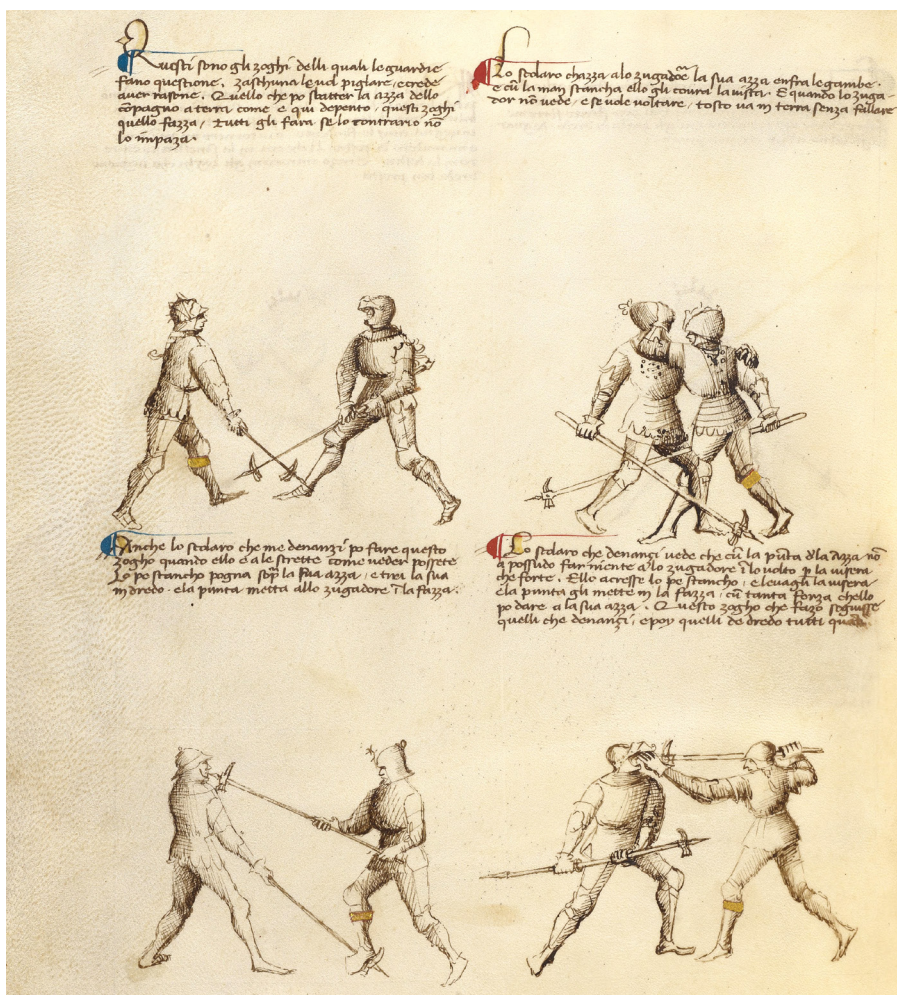 Questi sono gli zoghi delli quali le guardie
fano questione. zaschuna le vol pigliare, e crede
aver rasone. Quello che po sbatter la azza dello
cōpagno a terra, come e qui depento, questi zoghi
quello fazza, tutti gli fara se lo contrario nō
lo impaza.
Lo scolaro chazza a lo zugadore la sua azza enfra le gambe.
e cū la man stancha ello gli covra la vista. E quando lo zuga-
dor nō vede, e se vole voltare, tosto va in terra senza fallare
Anche lo scolaro che me denanzi po fare questo
zogho quando ello e a le strette come veder possete
Lo pe stancho pogna sopra la sua azza, e trei la sua
in dredo. e la punta metta allo zugadore ī la fazza.
Lo scolaro che denanzi vede che cū la pūta dla Azza nō
a possudo far niente a lo zugadore ī lo volto p la visera
che forte. Ello acresse lo pe stancho, e levagli la visera
e la punta gli mette in la fazza, cū tanta forza chello
po dare a la sua azza. Questo zogho che fazo seguisse
quelli che denanzi, e poy quelli de dredo tutti